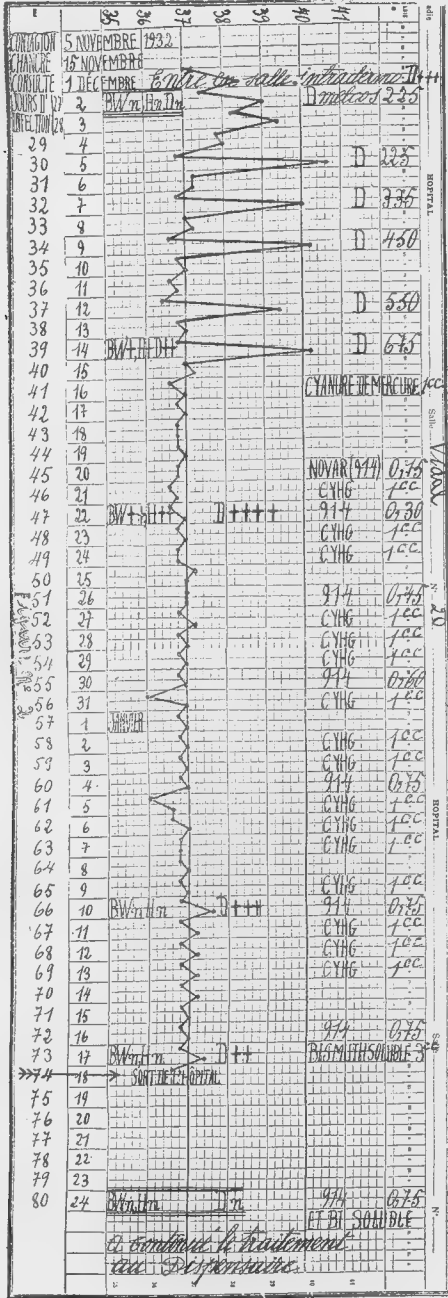 36 37 38 39 40 41
HOPITAL
CONTAGION 5 NOVEMBRE 1932
CHANCRE 15 NOVEMBRE
CONSULTE 1 DÉCEMBRE Entre en salle intradermo: D+++
JOURS D' 27 2 BWn, Hn, Dn Dmelcos 225
INFECTION 28 3
29 4
30 5 D 225
31 6
32 7 D 335
33 8
34 9 D 450
35 10
36 11
37 12 D 550
38 13
39 14 BW+, H+ D++ D 675
40 15
41 16 CYANURE DE MERCURE 1cc
42 17
43 18
44 19
45 20 NOVAR (914) 0,15
46 21 CYHG 1cc
47 22 D++++ 914 0,30
48 23 CYHG 1cc
49 24 CYHG 1cc
50 25
51 26 914 0,45
52 27 CYHG 1cc
53 28 CYHG 1cc
54 29 CYHG 1cc
55 30 914 0,60
56 31 CYHG 1cc
57 1 JANVIER
58 2 CYHG 1cc
59 3 CYHG 1cc
60 4 914 0,75
61 5 CYHG 1cc
62 6 CYHG 1cc
63 7 CYHG 1cc
64 8
65 9 CYHG 1cc
66 10 BWn Hn D+++ 914 0,75
67 11 CYHG 1cc
68 12 CYHG 1cc
69 13 CYHG 1cc
70 14
71 15
72 16 914 0,75
73 17 BWn, Hn D++ BISMUTH SOLUBLE 3cc
74 18 SORT DE L'HÔPITAL
75 19
76 20
77 21
78 22
79 23
80 24 BWn, Hn D n 914 0,75
ET BI SOLUBLE
a continué le traitement
au Dispensaire
Salle Vidal
N° 20
HOPITAL
Salle
N°